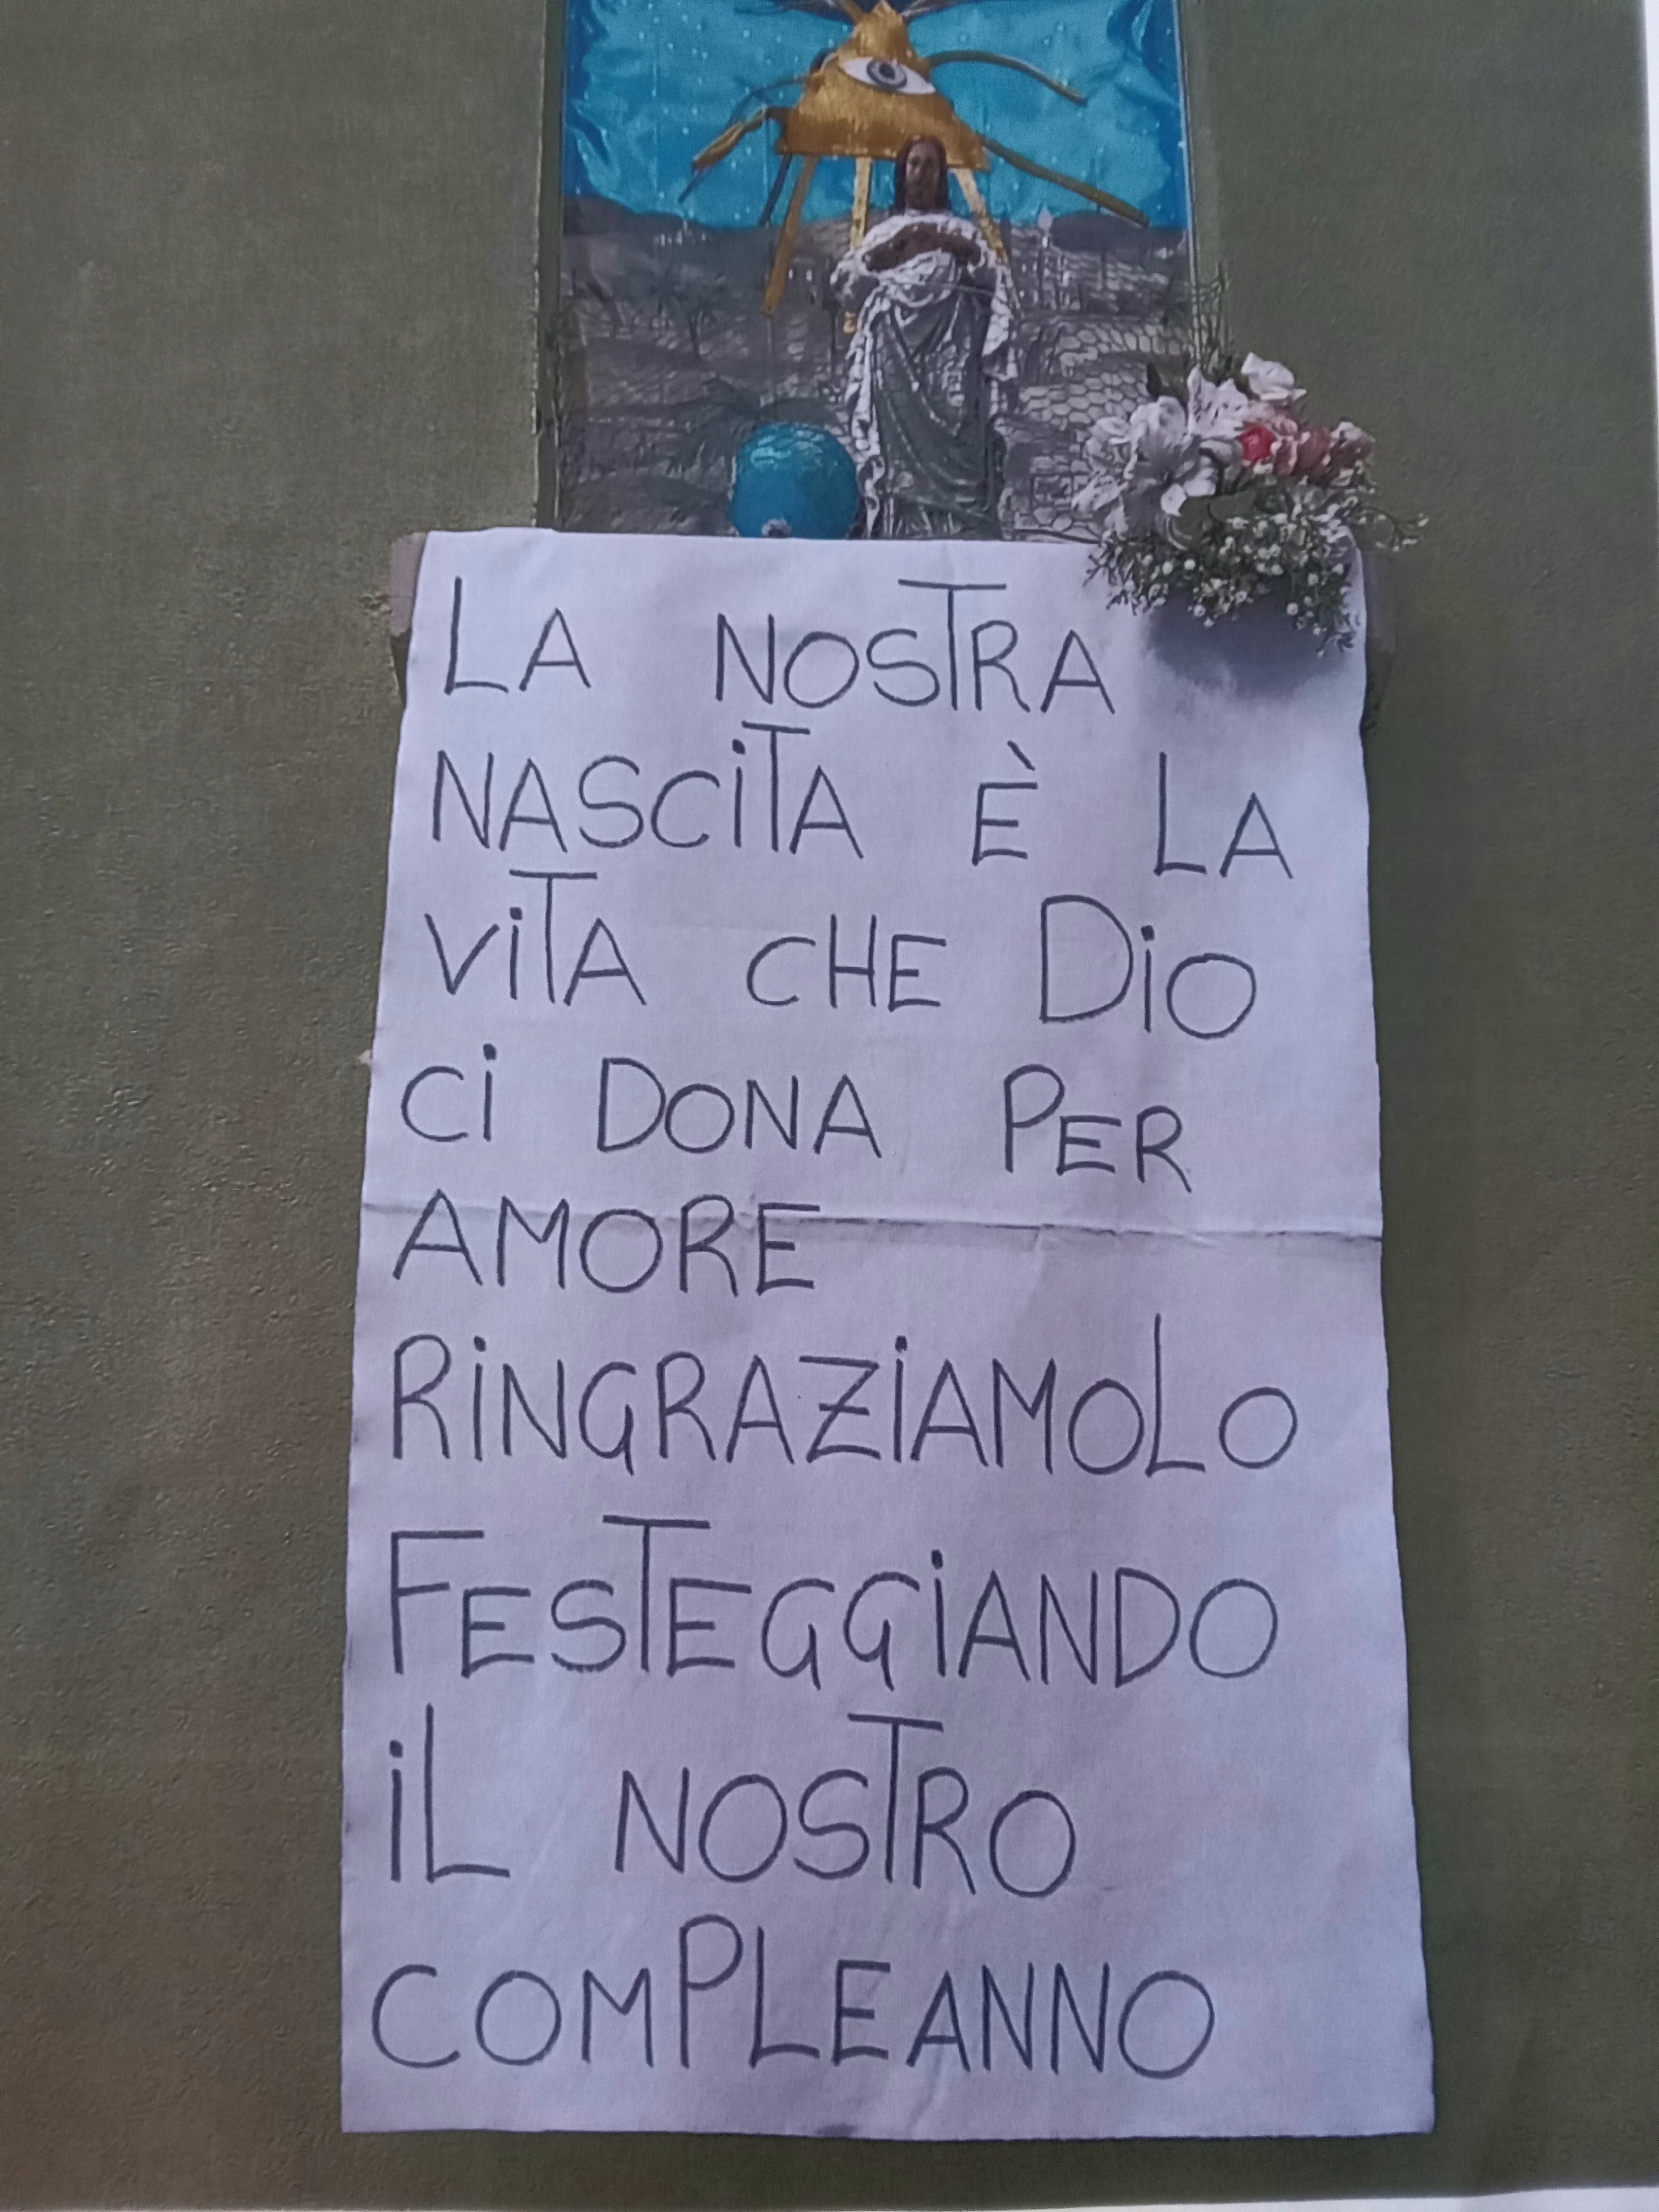 LA NOSTRA
NASCiTA È LA
ViTA CHE DiO
Ci DONA PER
AMORE
RiNGRAZiAMOLO
FESTEGGiANDO
iL NOSTRO
COMPLEANNO